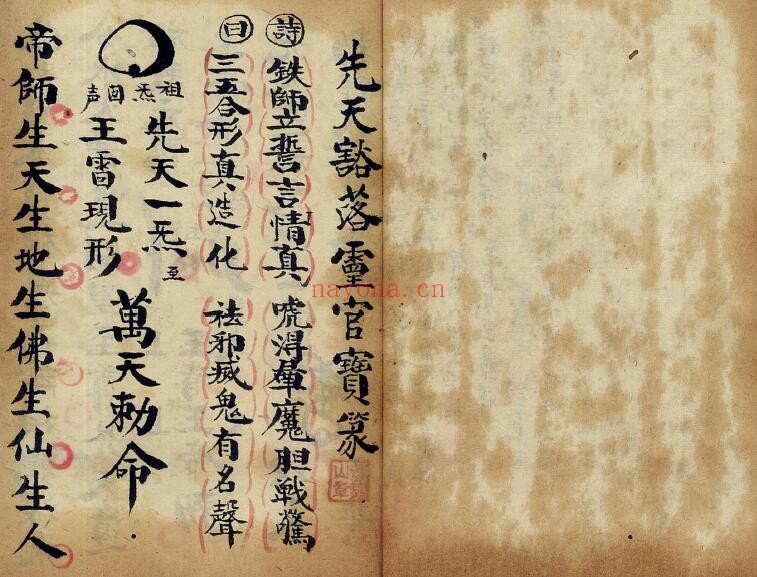 先天豁落靈官寶篆
詩曰
鉄師立誓言情真 唬得羣魔胆戰驚
三五合形真造化 祛邪滅鬼有名聲
祖炁囬声
先天一炁至
王雷現形
萬天勅命
帝師生天生地生佛生仙生人
nayona.cn